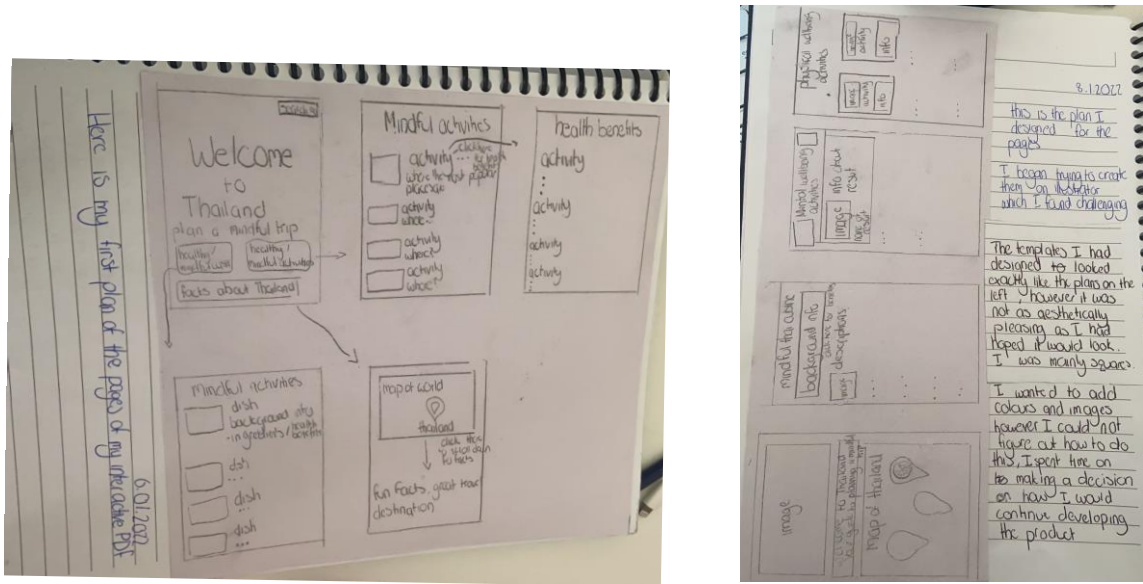 Here is my first plan of the pages of my interactive PDF
6.01.2022
Welcome
to
Thailand
plan a mindful trip
healthy/
healthy/
mindful activities
facts about Thailand
Mindful activities
activity
click here
...
where the most popular
places are
activity
where?
activity
where?
activity
where?
health benefits
activity
...
activity
...
activity
...
activity
Mindful activities
dish
background info
ingredients/health
benefits
dish
...
dish
...
dish
...
map of world
thailand
click then
scroll down
to facts
fun facts, great travel
destination
physical wellbeing
activities
image
activity
info
image
activity
info
Mental wellbeing
activities
image
info about
resort
name of
resort
mindful thai cuisine
background info
click here for benefits
descriptions
image
image
map of thailand
8.1.2022
this is the plan I
designed for the
pages
I began trying to create
them on illustrator
which I found challenging
The templates I had
designed to looked
exactly like the plans on the
left, however it was
not as aesthetically
pleasing as I had
hoped it would look.
I was mainly squares.
I wanted to add
colours and images
however I could not
figure out how to do
this, I spent time on
to making a decision
on how I would
continue developing
the product